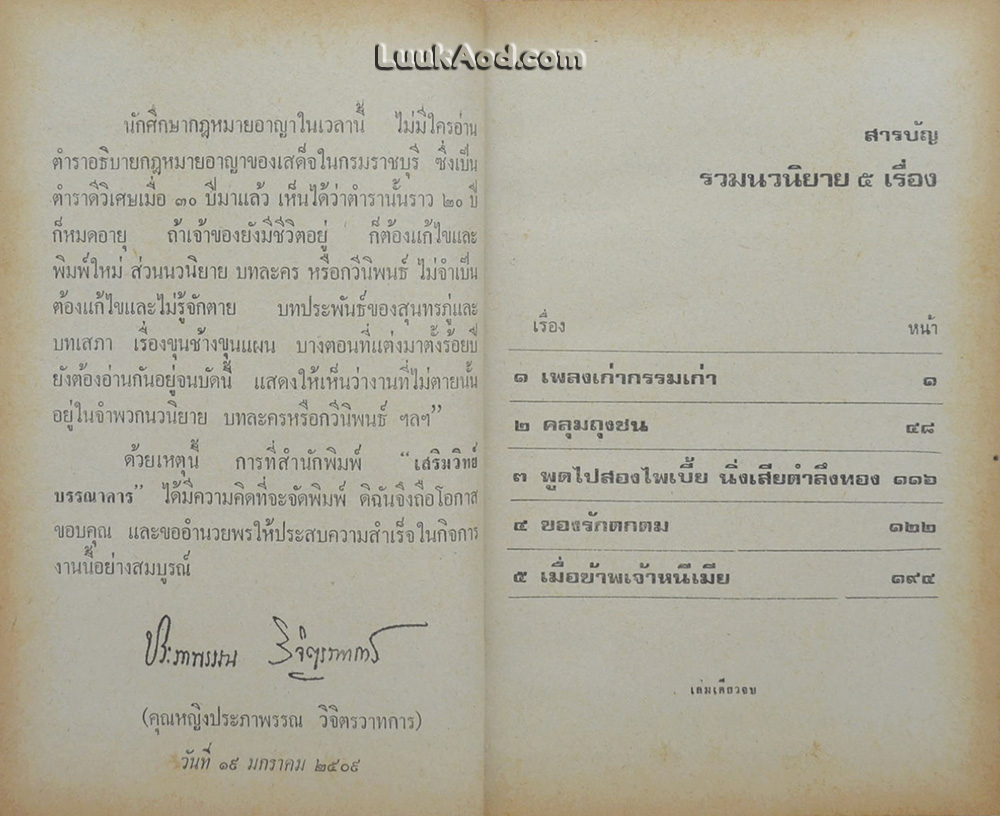 LuukAod.com
นักศึกษากฎหมายอาญาในเวลานี้ ไม่มีใครอ่าน
ตำราอธิบายกฎหมายอาญาของเสด็จในกรมราชบุรี ซึ่งเป็น
ตำราดีวิเศษเมื่อ ๓๐ ปีมาแล้ว เห็นได้ว่าตำรานั้นราว ๒๐ ปี
ก็หมดอายุ ถ้าเจ้าของยังมีชีวิตอยู่ ก็ต้องแก้ไขและ
พิมพ์ใหม่ ส่วนนวนิยาย บทละคร หรือกวีนิพนธ์ ไม่จำเป็น
ต้องแก้ไขและไม่รู้จักตาย บทประพันธ์ของสุนทรภู่และ
บทเสภา เรื่องขุนช้างขุนแผน บางตอนที่แต่งมาตั้งร้อยปี
ยังต้องอ่านกันอยู่จนบัดนี้ แสดงให้เห็นว่างานที่ไม่ตายนั้น
อยู่ในจำพวกนวนิยาย บทละครหรือกวีนิพนธ์ ฯลฯ”
ด้วยเหตุนี้ การที่สำนักพิมพ์ “เสริมวิทย์
บรรณาคาร” ได้มีความคิดที่จะจัดพิมพ์ ดิฉันจึงถือโอกาส
ขอบคุณ และขออำนวยพรให้ประสบความสำเร็จในกิจการ
งานนี้อย่างสมบูรณ์
ประภาพรรณ วิจิตรวาทการ
(คุณหญิงประภาพรรณ วิจิตรวาทการ)
วันที่ ๑๙ มกราคม ๒๕๐๙
สารบัญ
รวมนวนิยาย ๕ เรื่อง
เรื่อง หน้า
๑ เพลงเก่ากรรมเก่า ๑
๒ คลุมถุงชน ๔๘
๓ พูดไปสองไพเบี้ย นิ่งเสียตำลึงทอง ๑๑๖
๔ ของรักตกตม ๑๒๒
๕ เมื่อข้าพเจ้าหนีเมีย ๑๙๔
เล่มเดียวจบ